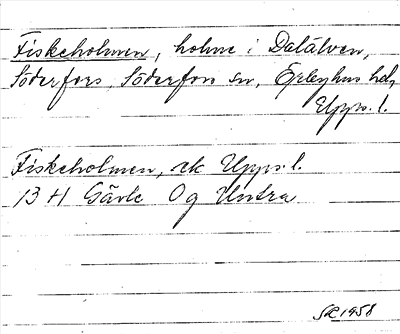 Fiskeholmen, holme i Dalälven,
Söderfors, Söderfors sn, Örbyhus hd,
Upps. l.
Fiskeholmen, ek Upps. l.
13 H Gävle Og Untra
SR 1958